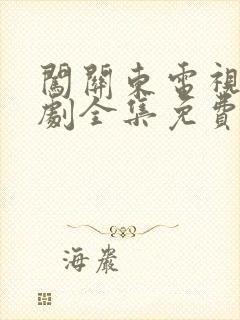 闖關東電視
劇全集免費
海巖